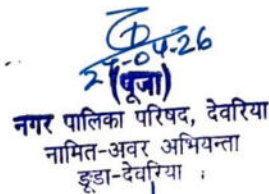 -04-26
(पूजा)
नगर पालिका परिषद, देवरिया
नामित-अवर अभियन्ता
डूडा-देवरिया